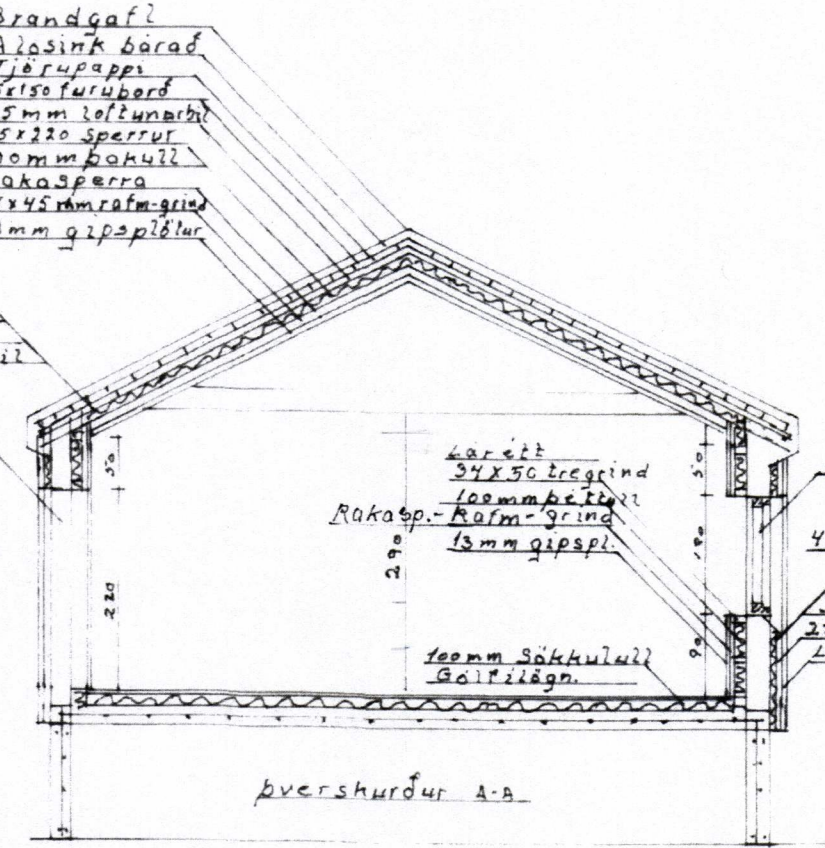 Brandgafl
Alosink bárað
Tjörupappi
x150 furuborð
5mm loftunarbil
5x220 Sperrur
00mm þakull
akasperra
x45 mm rafm-grind
mm gipsplötur
il
50
220
290
Lárétt
34x50 tregrind
100mm þéttull
Rakasp.- Rafm-grind
13mm gipspl.
50
90
100mm Sökkulull
Gólfílögn.
4
2
L
þverskurður A-A